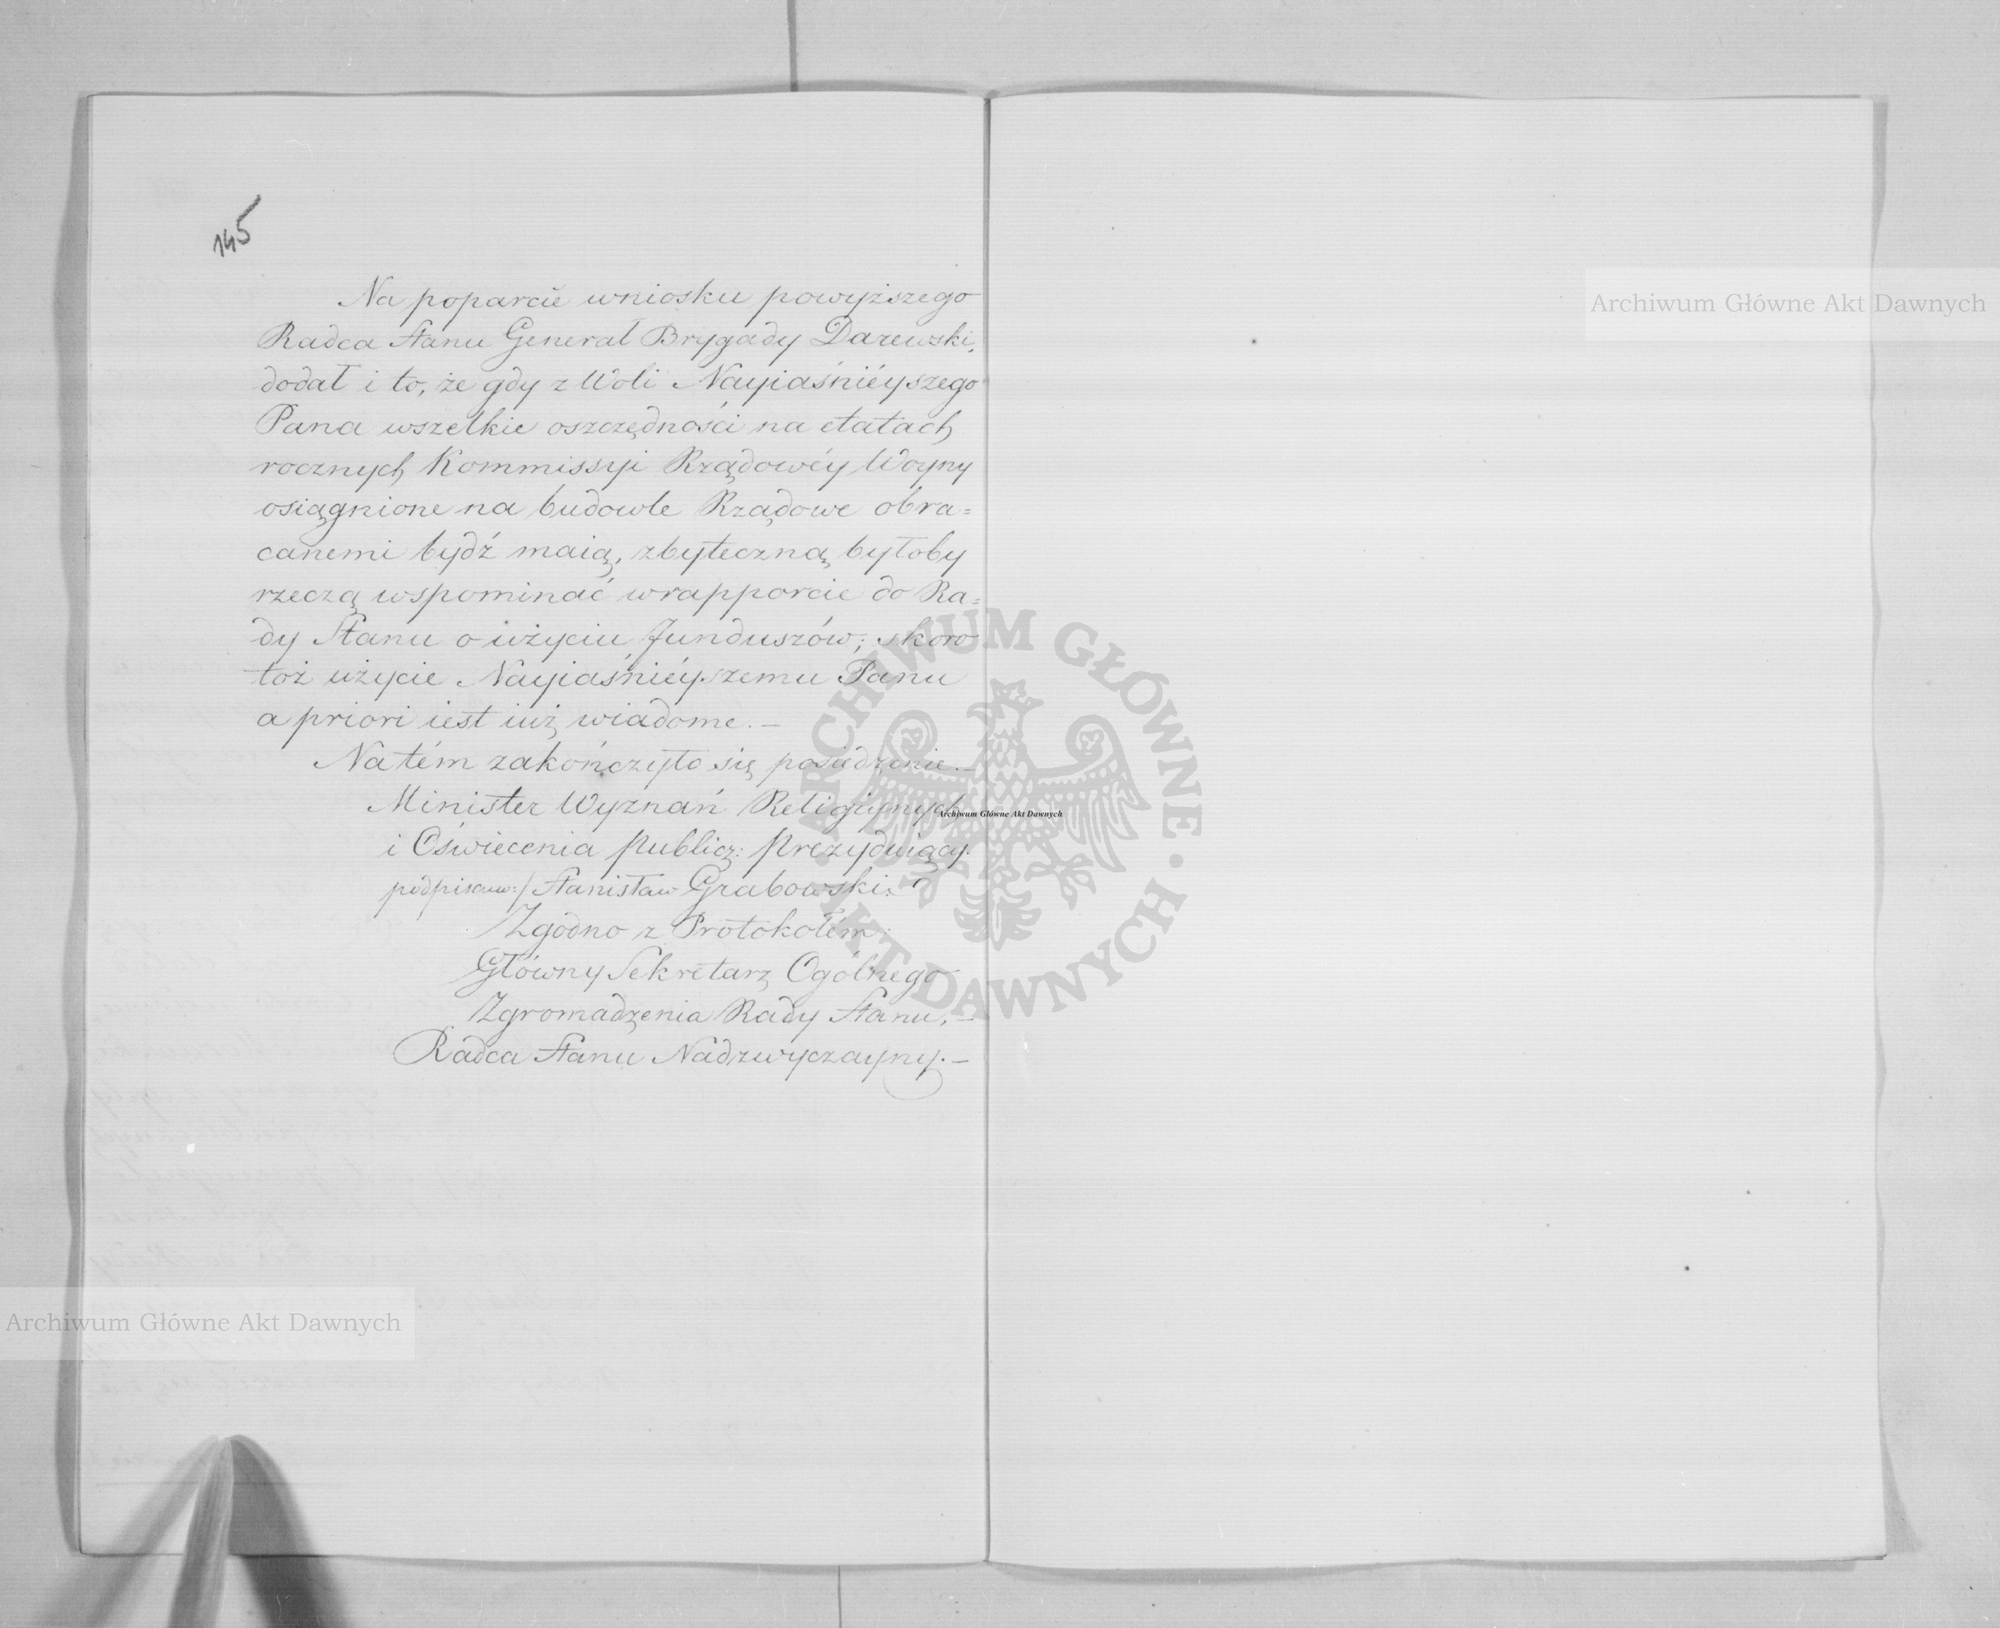 145
Na poparcie wniosku powyższego
Radca Stanu Generał Brygady Darewski,
dodał i to, że gdy z Woli Nayiaśniéyszego
Pana wszelkie oszczędności na etatach
rocznych Kommissyi Rządowéy Woyny
osiągnione na budowle Rządowe obra=
canemi bydź maią, zbyteczną byłoby
rzeczą wspominać w rapporcie do Ra=
dy Stanu o użyciu funduszów; skoro
toż użycie Nayiaśniéyszemu Panu
a priori iest iuż wiadome.—
Na tém zakończyło się posiedzenie.—
Minister Wyznań Religiynych
i Oświecenia Publicz: Prezyduiący.
podpisano:/ Stanisław Grabowski.
Zgodno z Protokołem:
Główny Sekretarz Ogólnego
Zgromadzenia Rady Stanu,—
Radca Stanu Nadzwyczayny.—
Archiwum Główne Akt Dawnych
Archiwum Główne Akt Dawnych
Archiwum Główne Akt Dawnych
ARCHIWUM GŁÓWNE · AKT DAWNYCH ·